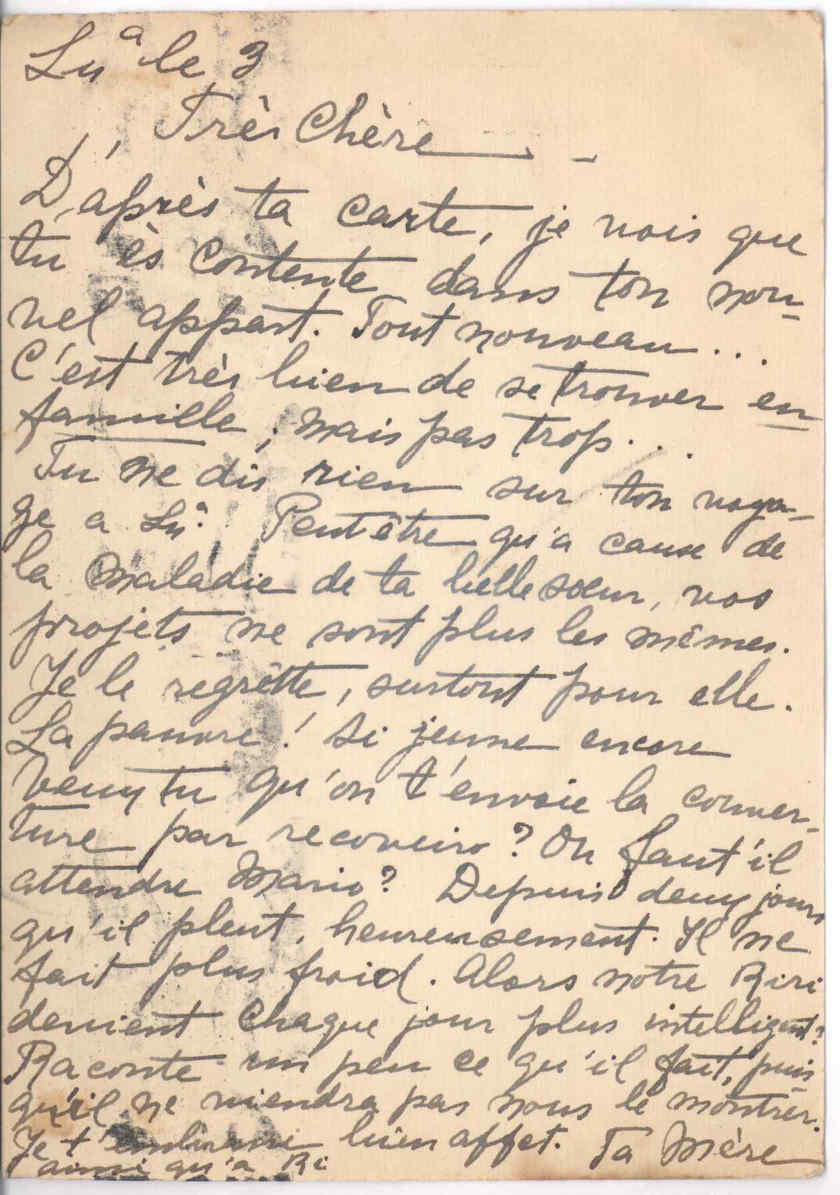 Lnª le 3
Très Chère
D'après ta carte, je vois que
tu ès contente dans ton nou-
vel appart. Tout nouveau...
C'est très bien de se trouver en
famille, mais pas trop...
Tu ne dis rien sur ton voya-
ge a Lnª. Peut être qu'a cause de
la maladie de ta belle soeur, vos
projets ne sont plus les mêmes.
Je le regrètte, surtout pour elle.
La pauvre! Si jeune encore
Veux tu qu'on t'envoie la couver-
ture par recoveiro? Ou faut'il
attendre Mario? Depuis deux jours
qu'il pleut, heureusement. Il ne
fait plus froid. Alors notre Riri
devient chaque jour plus intelligent?
Raconte un peu ce qu'il fait, puis-
qu'il ne viendra pas nous le montrer.
Je t'embrasse bien affet. Ta Mère
ainsi qu'a Ri